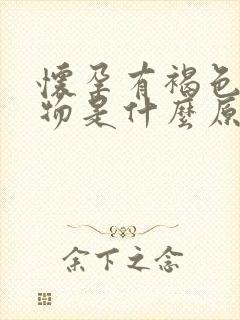 懷孕有褐色
物是什麼原
余下之念